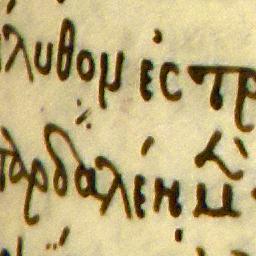 λυθον ἐς τρ
παρδαλέη μὲν